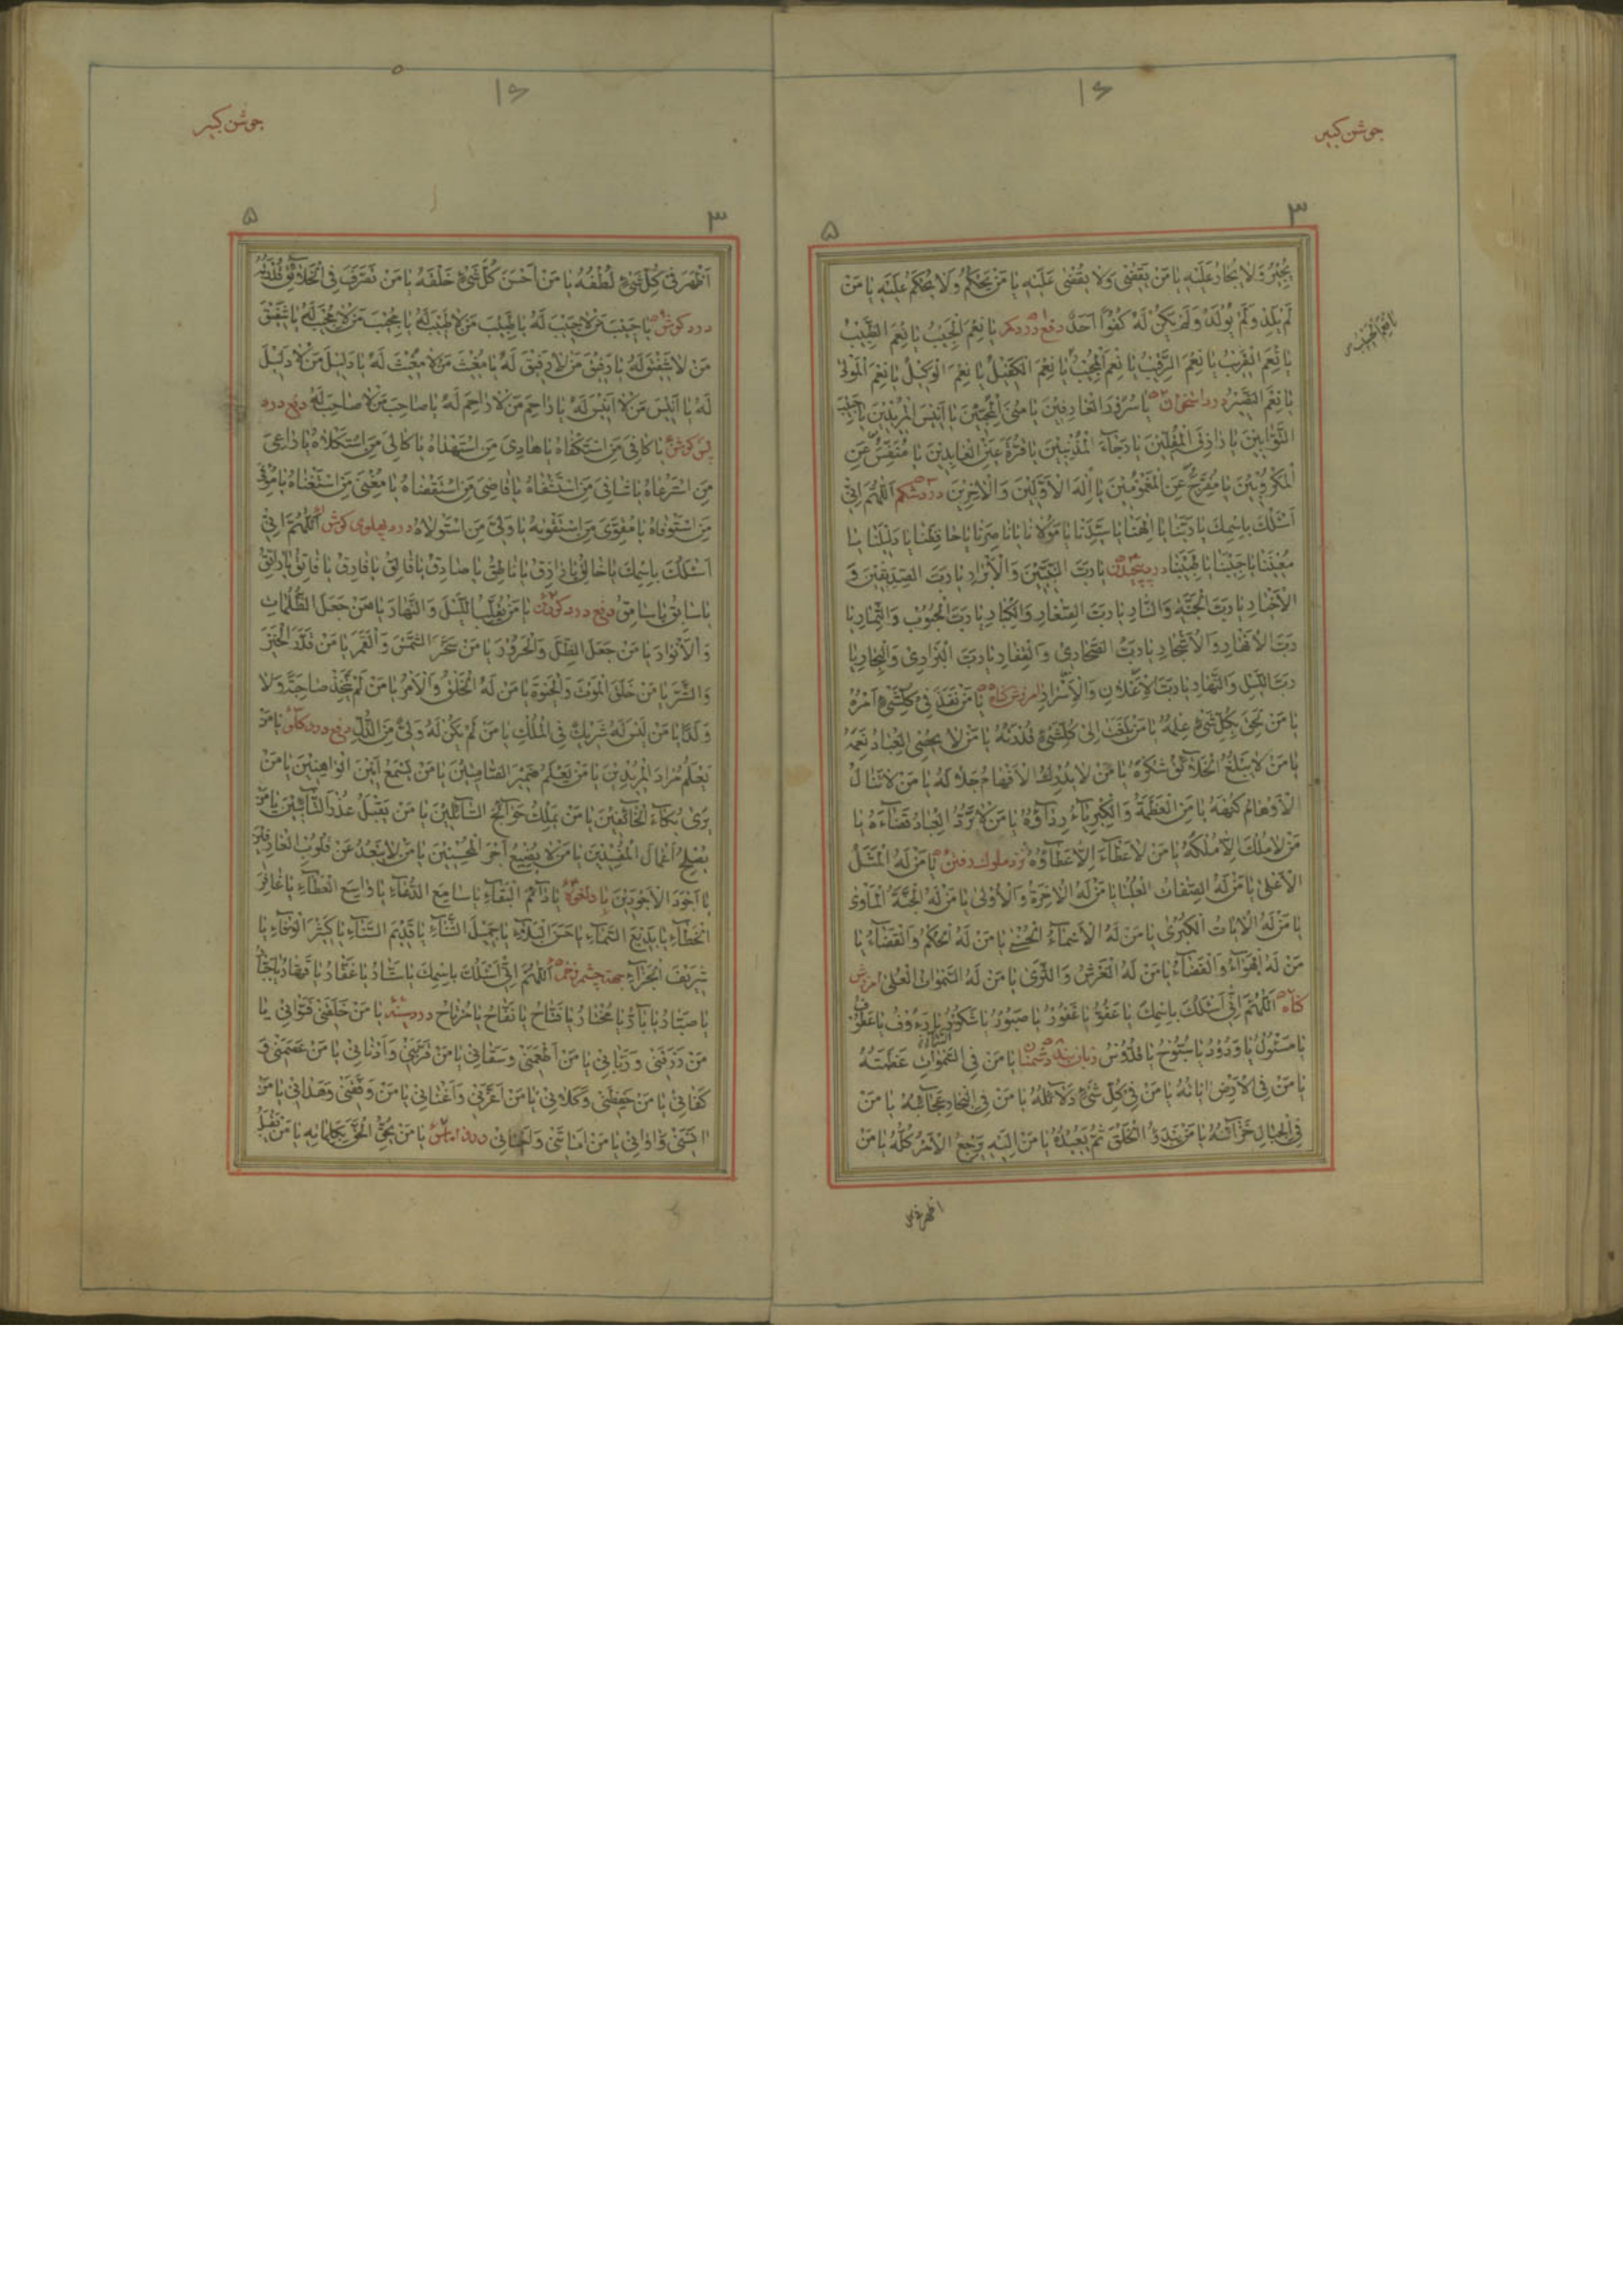 جوشن کبیر
١٤
٣
٥
يُجِيرُ وَلَا يُجَارُ عَلَيْهِ يَا مَنْ يَقْضِي وَلَا يُقْضَى عَلَيْهِ يَا مَنْ يَحْكُمُ وَلَا يُحْكَمُ عَلَيْهِ يَا مَنْ
لَمْ يَلِدْ وَلَمْ يُولَدْ وَلَمْ يَكُنْ لَهُ كُفُوًا أَحَدٌ دفع درد کمر يَا نِعْمَ الْحَبِيبُ يَا نِعْمَ الطَّبِيبُ
يَا نِعْمَ الْقَرِيبُ يَا نِعْمَ الرَّقِيبُ يَا نِعْمَ الْمُجِيبُ يَا نِعْمَ الْكَفِيلُ يَا نِعْمَ الْوَكِيلُ يَا نِعْمَ الْمَوْلَى
يَا نِعْمَ النَّصِيرُ درد استخوان يَا سُرُورَ الْعَارِفِينَ يَا مُنَى الْمُحِبِّينَ يَا أَنِيسَ الْمُرِيدِينَ يَا حَبِيبَ
التَّوَّابِينَ يَا رَازِقَ الْمُقِلِّينَ يَا رَجَاءَ الْمُذْنِبِينَ يَا قُرَّةَ عَيْنِ الْعَابِدِينَ يَا مُنَفِّسُ عَنِ
الْمَكْرُوبِينَ يَا مُفَرِّجُ عَنِ الْمَغْمُومِينَ يَا إِلَهَ الْأَوَّلِينَ وَالْآخِرِينَ درد شکم اللَّهُمَّ إِنِّي
أَسْئَلُكَ بِاسْمِكَ يَا رَبَّنَا يَا إِلَهَنَا يَا سَيِّدَنَا يَا مَوْلَانَا يَا نَاصِرَنَا يَا حَافِظَنَا يَا دَلِيلَنَا يَا
مُعِينَنَا يَا حَبِيبَنَا يَا طَبِيبَنَا درد پیچیدن يَا رَبَّ النَّبِيِّينَ وَالْأَبْرَارِ يَا رَبَّ الصِّدِّيقِينَ وَ
الْأَخْيَارِ يَا رَبَّ الْجَنَّةِ وَالنَّارِ يَا رَبَّ الصِّغَارِ وَالْكِبَارِ يَا رَبَّ الْحُبُوبِ وَالثِّمَارِ يَا
رَبَّ الْأَنْهَارِ وَالْأَشْجَارِ يَا رَبَّ الصَّحَارِي وَالْقِفَارِ يَا رَبَّ الْبَرَارِي وَالْبِحَارِ يَا
رَبَّ اللَّيْلِ وَالنَّهَارِ يَا رَبَّ الْأَعْلَانِ وَالْأَسْرَارِ آمرزش گناه يَا مَنْ نَفَذَ فِي كُلِّ شَيْءٍ أَمْرُهُ
يَا مَنْ لَحِقَ بِكُلِّ شَيْءٍ عِلْمُهُ يَا مَنْ بَلَغَتْ إِلَى كُلِّ شَيْءٍ قُدْرَتُهُ يَا مَنْ لَا يُحْصِي الْعِبَادُ نِعَمَهُ
يَا مَنْ لَا يَبْلُغُ الْخَلَائِقُ شُكْرَهُ يَا مَنْ لَا يُدْرِكُ الْأَفْهَامُ جَلَالَهُ يَا مَنْ لَا تَنَالُ
الْأَوْهَامُ كُنْهَهُ يَا مَنِ الْعَظَمَةُ وَالْكِبْرِيَاءُ رِدَاؤُهُ يَا مَنْ لَا تَرُدُّ الْعِبَادُ قَضَاءَهُ يَا
مَنْ لَا مُلْكَ إِلَّا مُلْكُهُ يَا مَنْ لَا عَطَاءَ إِلَّا عَطَاؤُهُ نزد ملوک رفتن يَا مَنْ لَهُ الْمَثَلُ
الْأَعْلَى يَا مَنْ لَهُ الصِّفَاتُ الْعُلْيَا يَا مَنْ لَهُ الْآخِرَةُ وَالْأُولَى يَا مَنْ لَهُ الْجَنَّةُ الْمَأْوَى
يَا مَنْ لَهُ الْآيَاتُ الْكُبْرَى يَا مَنْ لَهُ الْأَسْمَاءُ الْحُسْنَى يَا مَنْ لَهُ الْحُكْمُ وَالْقَضَاءُ يَا
مَنْ لَهُ الْهَوَاءُ وَالْفَضَاءُ يَا مَنْ لَهُ الْعَرْشُ وَالثَّرَى يَا مَنْ لَهُ السَّمَوَاتُ الْعُلَى آمرزش
گناه اللَّهُمَّ إِنِّي أَسْئَلُكَ بِاسْمِكَ يَا عَفُوُّ يَا غَفُورُ يَا صَبُورُ يَا شَكُورُ يَا رَءُوفُ يَا عَطُوفُ
يَا مَسْئُولُ يَا وَدُودُ يَا سُبُّوحُ يَا قُدُّوسُ زبان بند دشمنان يَا مَنْ فِي السَّمَوَاتِ عَظَمَتُهُ
يَا مَنْ فِي الْأَرْضِ آيَاتُهُ يَا مَنْ فِي كُلِّ شَيْءٍ دَلَائِلُهُ يَا مَنْ فِي الْبِحَارِ عَجَائِبُهُ يَا مَنْ
فِي الْجِبَالِ خَزَائِنُهُ يَا مَنْ يَبْدَؤُ الْخَلْقَ ثُمَّ يُعِيدُهُ يَا مَنْ إِلَيْهِ يَرْجِعُ الْأَمْرُ كُلُّهُ يَا مَنْ
اظهر فی
جوشن کبیر
١٤
٣
٥
أَظْهَرَ فِي كُلِّ شَيْءٍ لُطْفَهُ يَا مَنْ أَحْسَنَ كُلَّ شَيْءٍ خَلْقَهُ يَا مَنْ تَصَرَّفَ فِي الْخَلَائِقِ قُدْرَتُهُ
درد گوش يَا حَبِيبَ مَنْ لَا حَبِيبَ لَهُ يَا طَبِيبَ مَنْ لَا طَبِيبَ لَهُ يَا مُجِيبَ مَنْ لَا مُجِيبَ لَهُ يَا شَفِيقَ
مَنْ لَا شَفِيقَ لَهُ يَا رَفِيقَ مَنْ لَا رَفِيقَ لَهُ يَا مُغِيثَ مَنْ لَا مُغِيثَ لَهُ يَا دَلِيلَ مَنْ لَا دَلِيلَ
لَهُ يَا أَنِيسَ مَنْ لَا أَنِيسَ لَهُ يَا رَاحِمَ مَنْ لَا رَاحِمَ لَهُ يَا صَاحِبَ مَنْ لَا صَاحِبَ لَهُ دفع درد
پس گوش يَا كَافِيَ مَنِ اسْتَكْفَاهُ يَا هَادِيَ مَنِ اسْتَهْدَاهُ يَا كَالِئَ مَنِ اسْتَكْلَاهُ يَا رَاعِيَ
مَنِ اسْتَرْعَاهُ يَا شَافِيَ مَنِ اسْتَشْفَاهُ يَا قَاضِيَ مَنِ اسْتَقْضَاهُ يَا مُغْنِيَ مَنِ اسْتَغْنَاهُ يَا مُوفِيَ
مَنِ اسْتَوْفَاهُ يَا مُقَوِّيَ مَنِ اسْتَقْوَاهُ يَا وَلِيَّ مَنِ اسْتَوْلَاهُ درد پهلوی گوش اللَّهُمَّ إِنِّي
أَسْئَلُكَ بِاسْمِكَ يَا خَالِقُ يَا رَازِقُ يَا نَاطِقُ يَا صَادِقُ يَا فَالِقُ يَا فَارِقُ يَا فَاتِقُ يَا رَاتِقُ
يَا سَابِقُ يَا سَامِقُ دفع درد گردن يَا مَنْ يُقَلِّبُ اللَّيْلَ وَالنَّهَارَ يَا مَنْ جَعَلَ الظُّلُمَاتِ
وَالْأَنْوَارَ يَا مَنْ جَعَلَ الظِّلَّ وَالْحَرُورَ يَا مَنْ سَخَّرَ الشَّمْسَ وَالْقَمَرَ يَا مَنْ قَدَّرَ الْخَيْرَ
وَالشَّرَّ يَا مَنْ خَلَقَ الْمَوْتَ وَالْحَيَوةَ يَا مَنْ لَهُ الْخَلْقُ وَالْأَمْرُ يَا مَنْ لَمْ يَتَّخِذْ صَاحِبَةً وَلَا
وَلَدًا يَا مَنْ لَيْسَ لَهُ شَرِيكٌ فِي الْمُلْكِ يَا مَنْ لَمْ يَكُنْ لَهُ وَلِيٌّ مِنَ الذُّلِّ دفع درد گلو يَا مَنْ
يَعْلَمُ مُرَادَ الْمُرِيدِينَ يَا مَنْ يَعْلَمُ ضَمِيرَ الصَّامِتِينَ يَا مَنْ يَسْمَعُ أَنِينَ الْوَاهِنِينَ يَا مَنْ
يَرَى بُكَاءَ الْخَائِفِينَ يَا مَنْ يَمْلِكُ حَوَائِجَ السَّائِلِينَ يَا مَنْ يَقْبَلُ عُذْرَ التَّائِبِينَ يَا مَنْ
يُصْلِحُ أَعْمَالَ الْمُفْسِدِينَ يَا مَنْ لَا يُضِيعُ أَجْرَ الْمُحْسِنِينَ يَا مَنْ لَا يَبْعُدُ عَنْ قُلُوبِ الْعَارِفِينَ
يَا أَجْوَدَ الْأَجْوَدِينَ يَا دَائِمَ الْبَقَاءِ يَا سَامِعَ الدُّعَاءِ يَا وَاسِعَ الْعَطَاءِ يَا غَافِرَ
الْخَطَاءِ يَا بَدِيعَ السَّمَاءِ يَا حَسَنَ الْبَلَاءِ يَا جَمِيلَ الثَّنَاءِ يَا قَدِيمَ السَّنَاءِ يَا كَثِيرَ الْوَفَاءِ يَا
شَرِيفَ الْجَزَاءِ جهة چشم زخم اللَّهُمَّ إِنِّي أَسْئَلُكَ بِاسْمِكَ يَا سَتَّارُ يَا غَفَّارُ يَا قَهَّارُ يَا جَبَّارُ
يَا صَبَّارُ يَا بَارُّ يَا مُخْتَارُ يَا فَتَّاحُ يَا نَفَّاحُ يَا مُرْتَاحُ درد سینه يَا مَنْ خَلَقَنِي وَسَوَّانِي يَا
مَنْ رَزَقَنِي وَرَبَّانِي يَا مَنْ أَطْعَمَنِي وَسَقَانِي يَا مَنْ قَرَّبَنِي وَأَدْنَانِي يَا مَنْ عَصَمَنِي وَ
كَفَانِي يَا مَنْ حَفِظَنِي وَكَلَانِي يَا مَنْ أَعَزَّنِي وَأَغْنَانِي يَا مَنْ وَفَّقَنِي وَهَدَانِي يَا مَنْ
آنَسَنِي وَآوَانِي يَا مَنْ أَمَاتَنِي وَأَحْيَانِي يَا مَنْ يُحِقُّ الْحَقَّ بِكَلِمَاتِهِ يَا مَنْ يَقْبَلُ